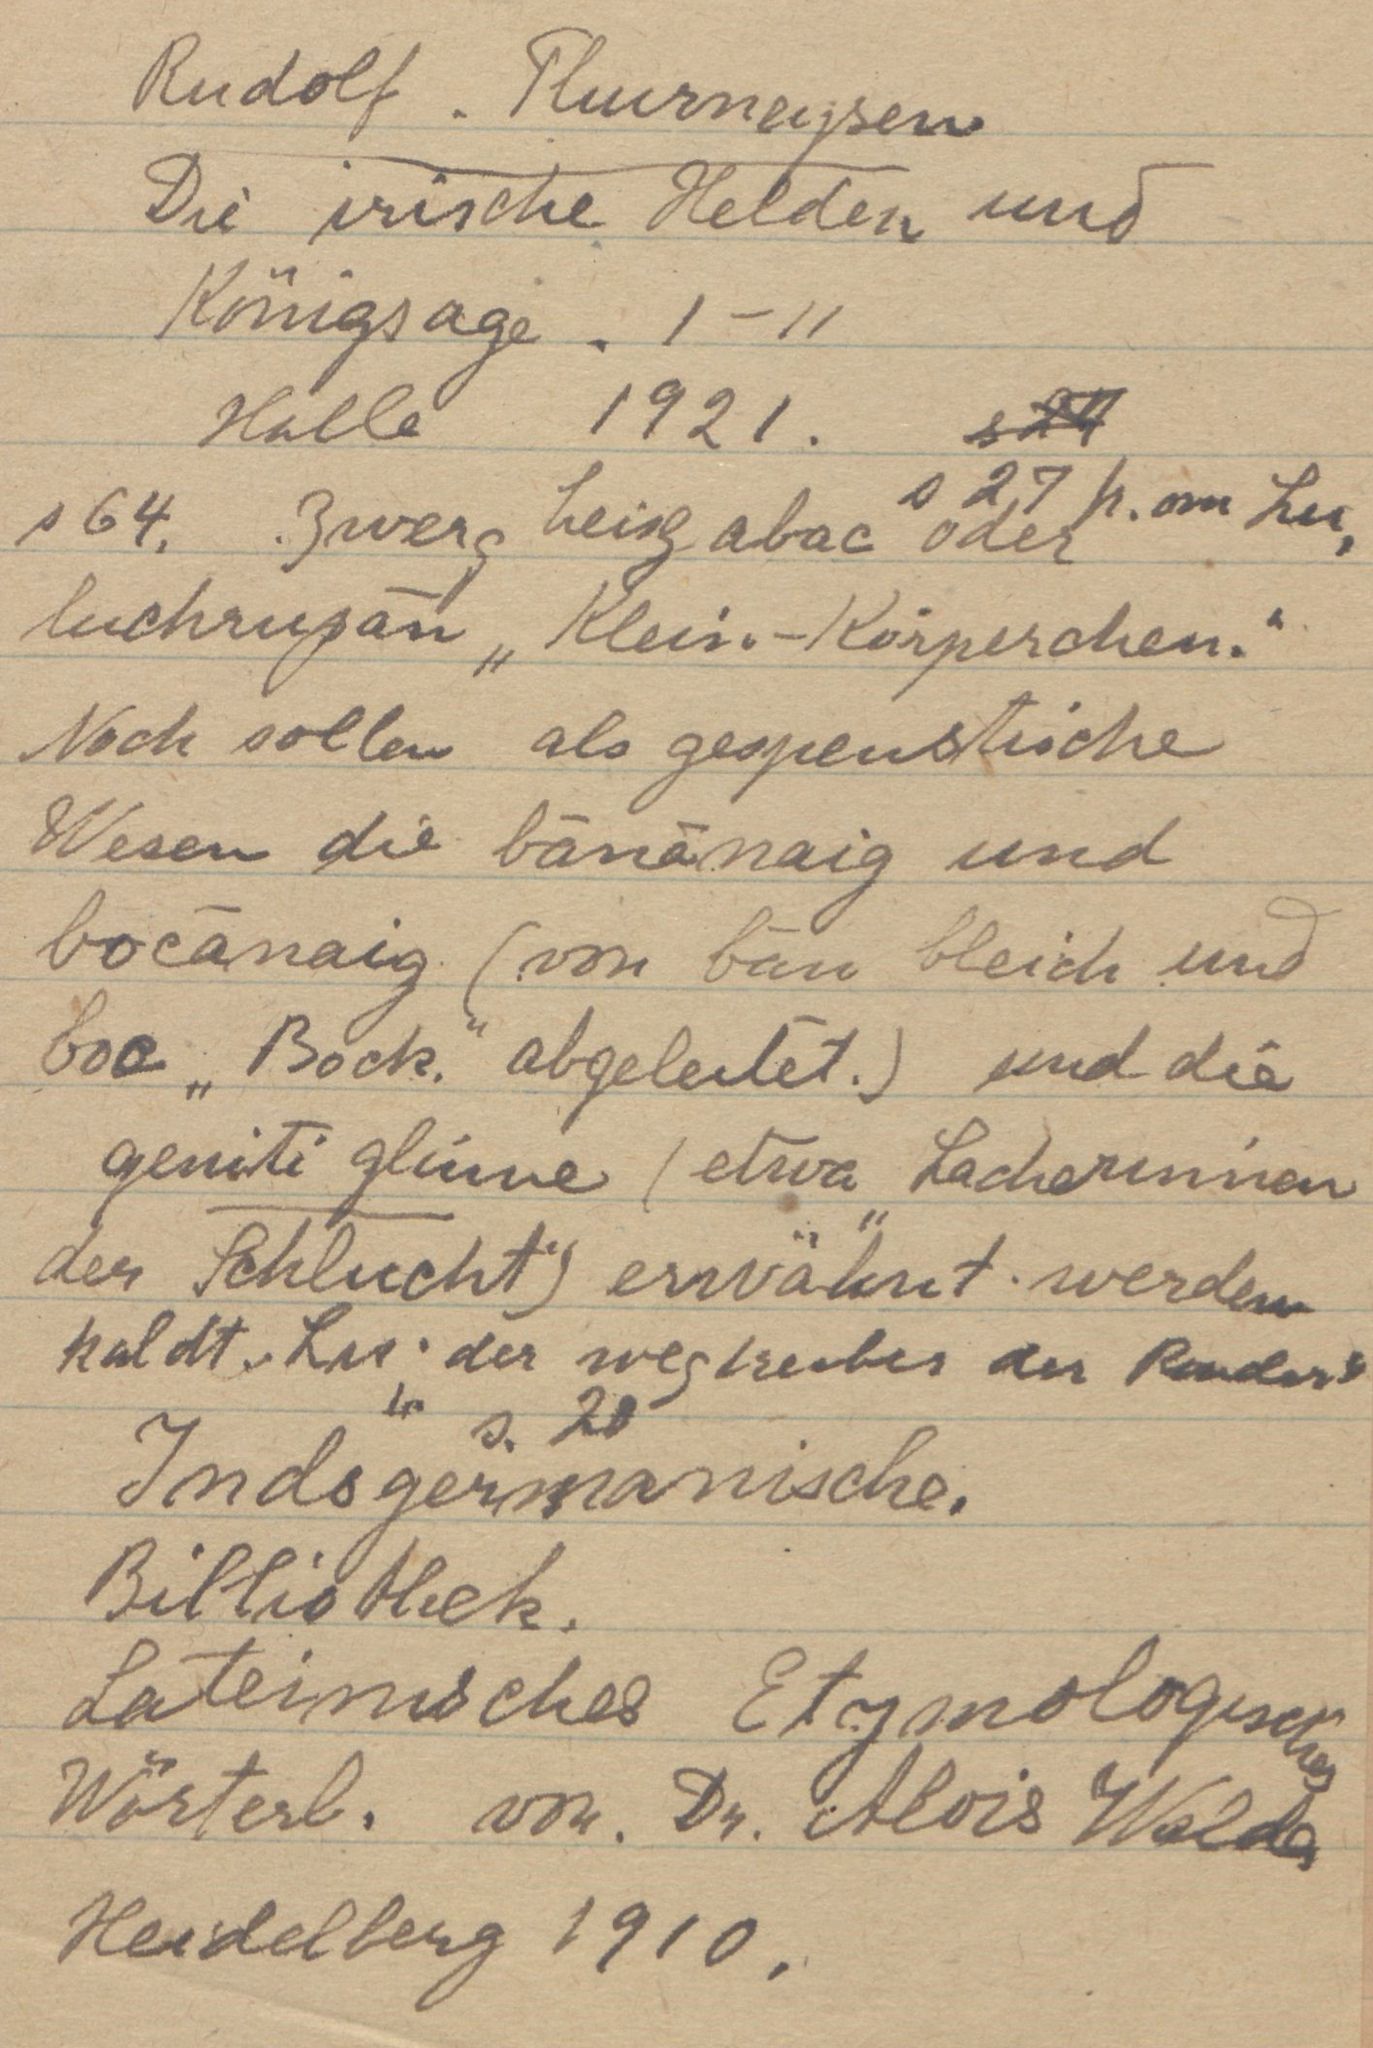 Rudolf. Thurneysen
Die irische Helden und
Königsage. I-II
Halle 1921. s 24
s 27 p. om Lu,
s 64. Zwerg heisz abac oder
luchrupān „Klein-Körperchen."
Noch sollen als gespenstische
Wesen die bānānaig und
bocānaig (von bān bleich und
boc „Bock." abgeleitet.) und die
geniti glinne (etwa „Lacherinnen
der Schlucht") erwähnt werden
kaldt. Lu: der wegtreiber der Rinder"
s. 20
Indogermanische.
Bibliothek.
Lateinisches Etymologisches
Wörterb. von. Dr. Alois Walde
Heidelberg 1910.